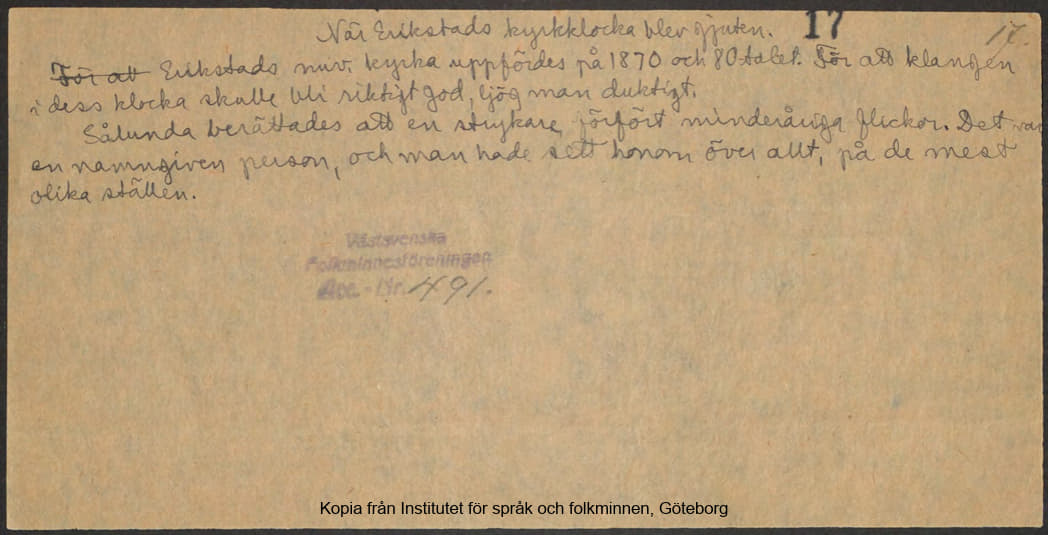 När Erikstads kyrkklocka blev gjuten.
17
17.
För att Erikstads nuv. kyrka uppfördes på 1870 och 80talet. För att klangen
i dess klocka skulle bli riktigt god, ljög man duktigt.
Sålunda berättades att en strykare förfört minderåriga flickor. Det var
en namngiven person, och man hade sett honom över allt, på de mest
olika ställen.
Västsvenska
Folkminnesföreningen
Acc. - Nr. 491.
Kopia från Institutet för språk och folkminnen, Göteborg